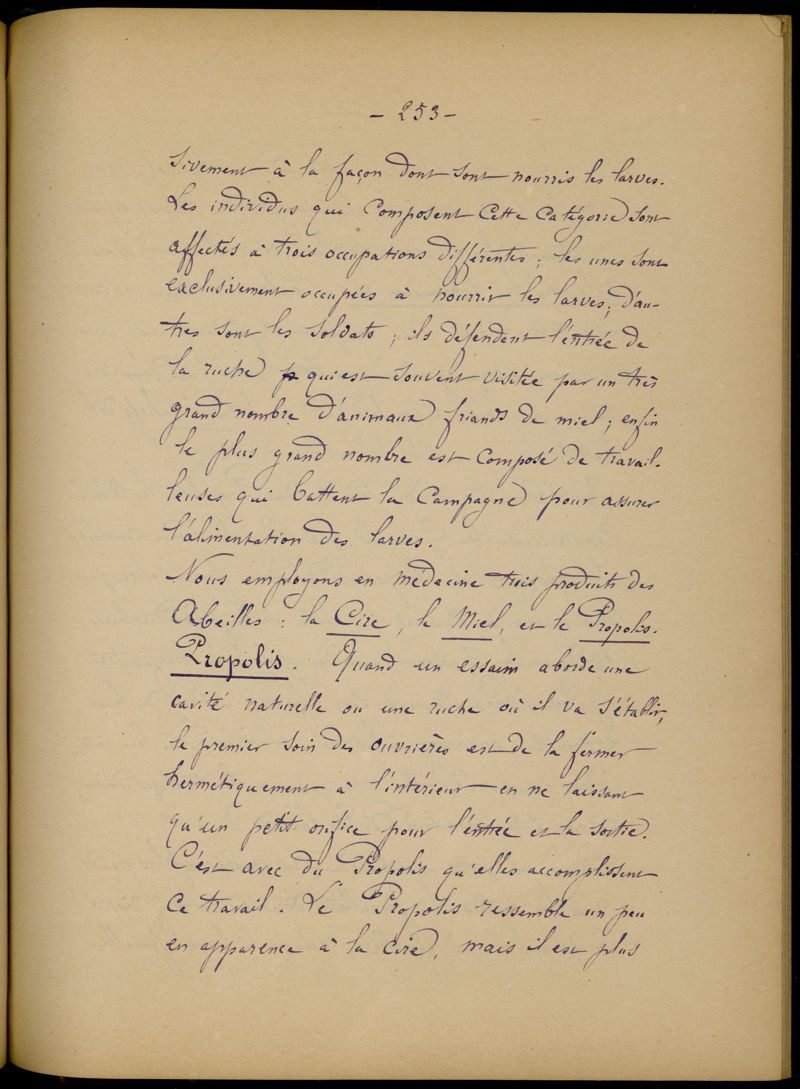 - 253 -
sivement à la façon dont sont nourris les larves.
Les individus qui composent cette catégorie sont
affectés à trois occupations différentes ; les unes sont
exclusivement occupées à nourrir les larves ; d'au-
tres sont les soldats ; ils défendent l'entrée de
la ruche qui est souvent visitée par un très
grand nombre d'animaux friands de miel ; enfin
le plus grand nombre est composé de travail-
leuses qui battent la campagne pour assurer
l'alimentation des larves.
Nous employons en médecine trois produits des
Abeilles : la Cire, le Miel, et le Propolis.
Propolis. Quand un essaim aborde une
cavité naturelle ou une ruche où il va s'établir,
le premier soin des ouvrières est de la fermer
hermétiquement à l'intérieur en ne laissant
qu'un petit orifice pour l'entrée et la sortie.
C'est avec du Propolis qu'elles accomplissent
ce travail. Le Propolis ressemble un peu
en apparence à la cire, mais il est plus